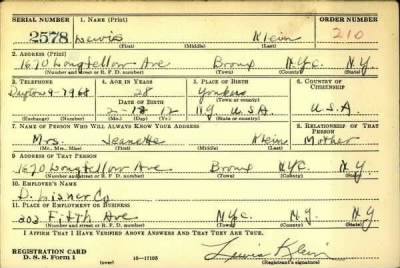 SERIAL NUMBER 1. NAME (Print) ORDER NUMBER
2578 Lewis Klein 210
(First) (Middle) (Last)
2. ADDRESS (Print)
1670 Longfellow Ave Bronx N.Y.C. N.Y.
(Number and street or R. F. D. number) (Town) (County) (State)
3. TELEPHONE 4. AGE IN YEARS 5. PLACE OF BIRTH 6. COUNTRY OF CITIZENSHIP
Dayton 9-7968 28 Yonkers
DATE OF BIRTH (Town or county)
2-18-12 NY U.S.A. U.S.A
(Exchange) (Number) (Mo.) (Day) (Yr.) (State or country)
7. NAME OF PERSON WHO WILL ALWAYS KNOW YOUR ADDRESS 8. RELATIONSHIP OF THAT PERSON
Mrs. Jeanette Klein Mother
(Mr., Mrs., Miss) (First) (Middle) (Last)
9. ADDRESS OF THAT PERSON
1670 Longfellow Ave Bronx NYC. N.Y
(Number and street or R. F. D. number) (Town) (County) (State)
10. EMPLOYER'S NAME
D. Lisner Co
11. PLACE OF EMPLOYMENT OR BUSINESS
303 Fifth Ave NYC. NY. NY
(Number and street or R. F. D. number) (Town) (County) (State)
I AFFIRM THAT I HAVE VERIFIED ABOVE ANSWERS AND THAT THEY ARE TRUE.
REGISTRATION CARD Lewis Klein
D. S. S. Form 1 (over) 16-17105 (Registrant's signature)